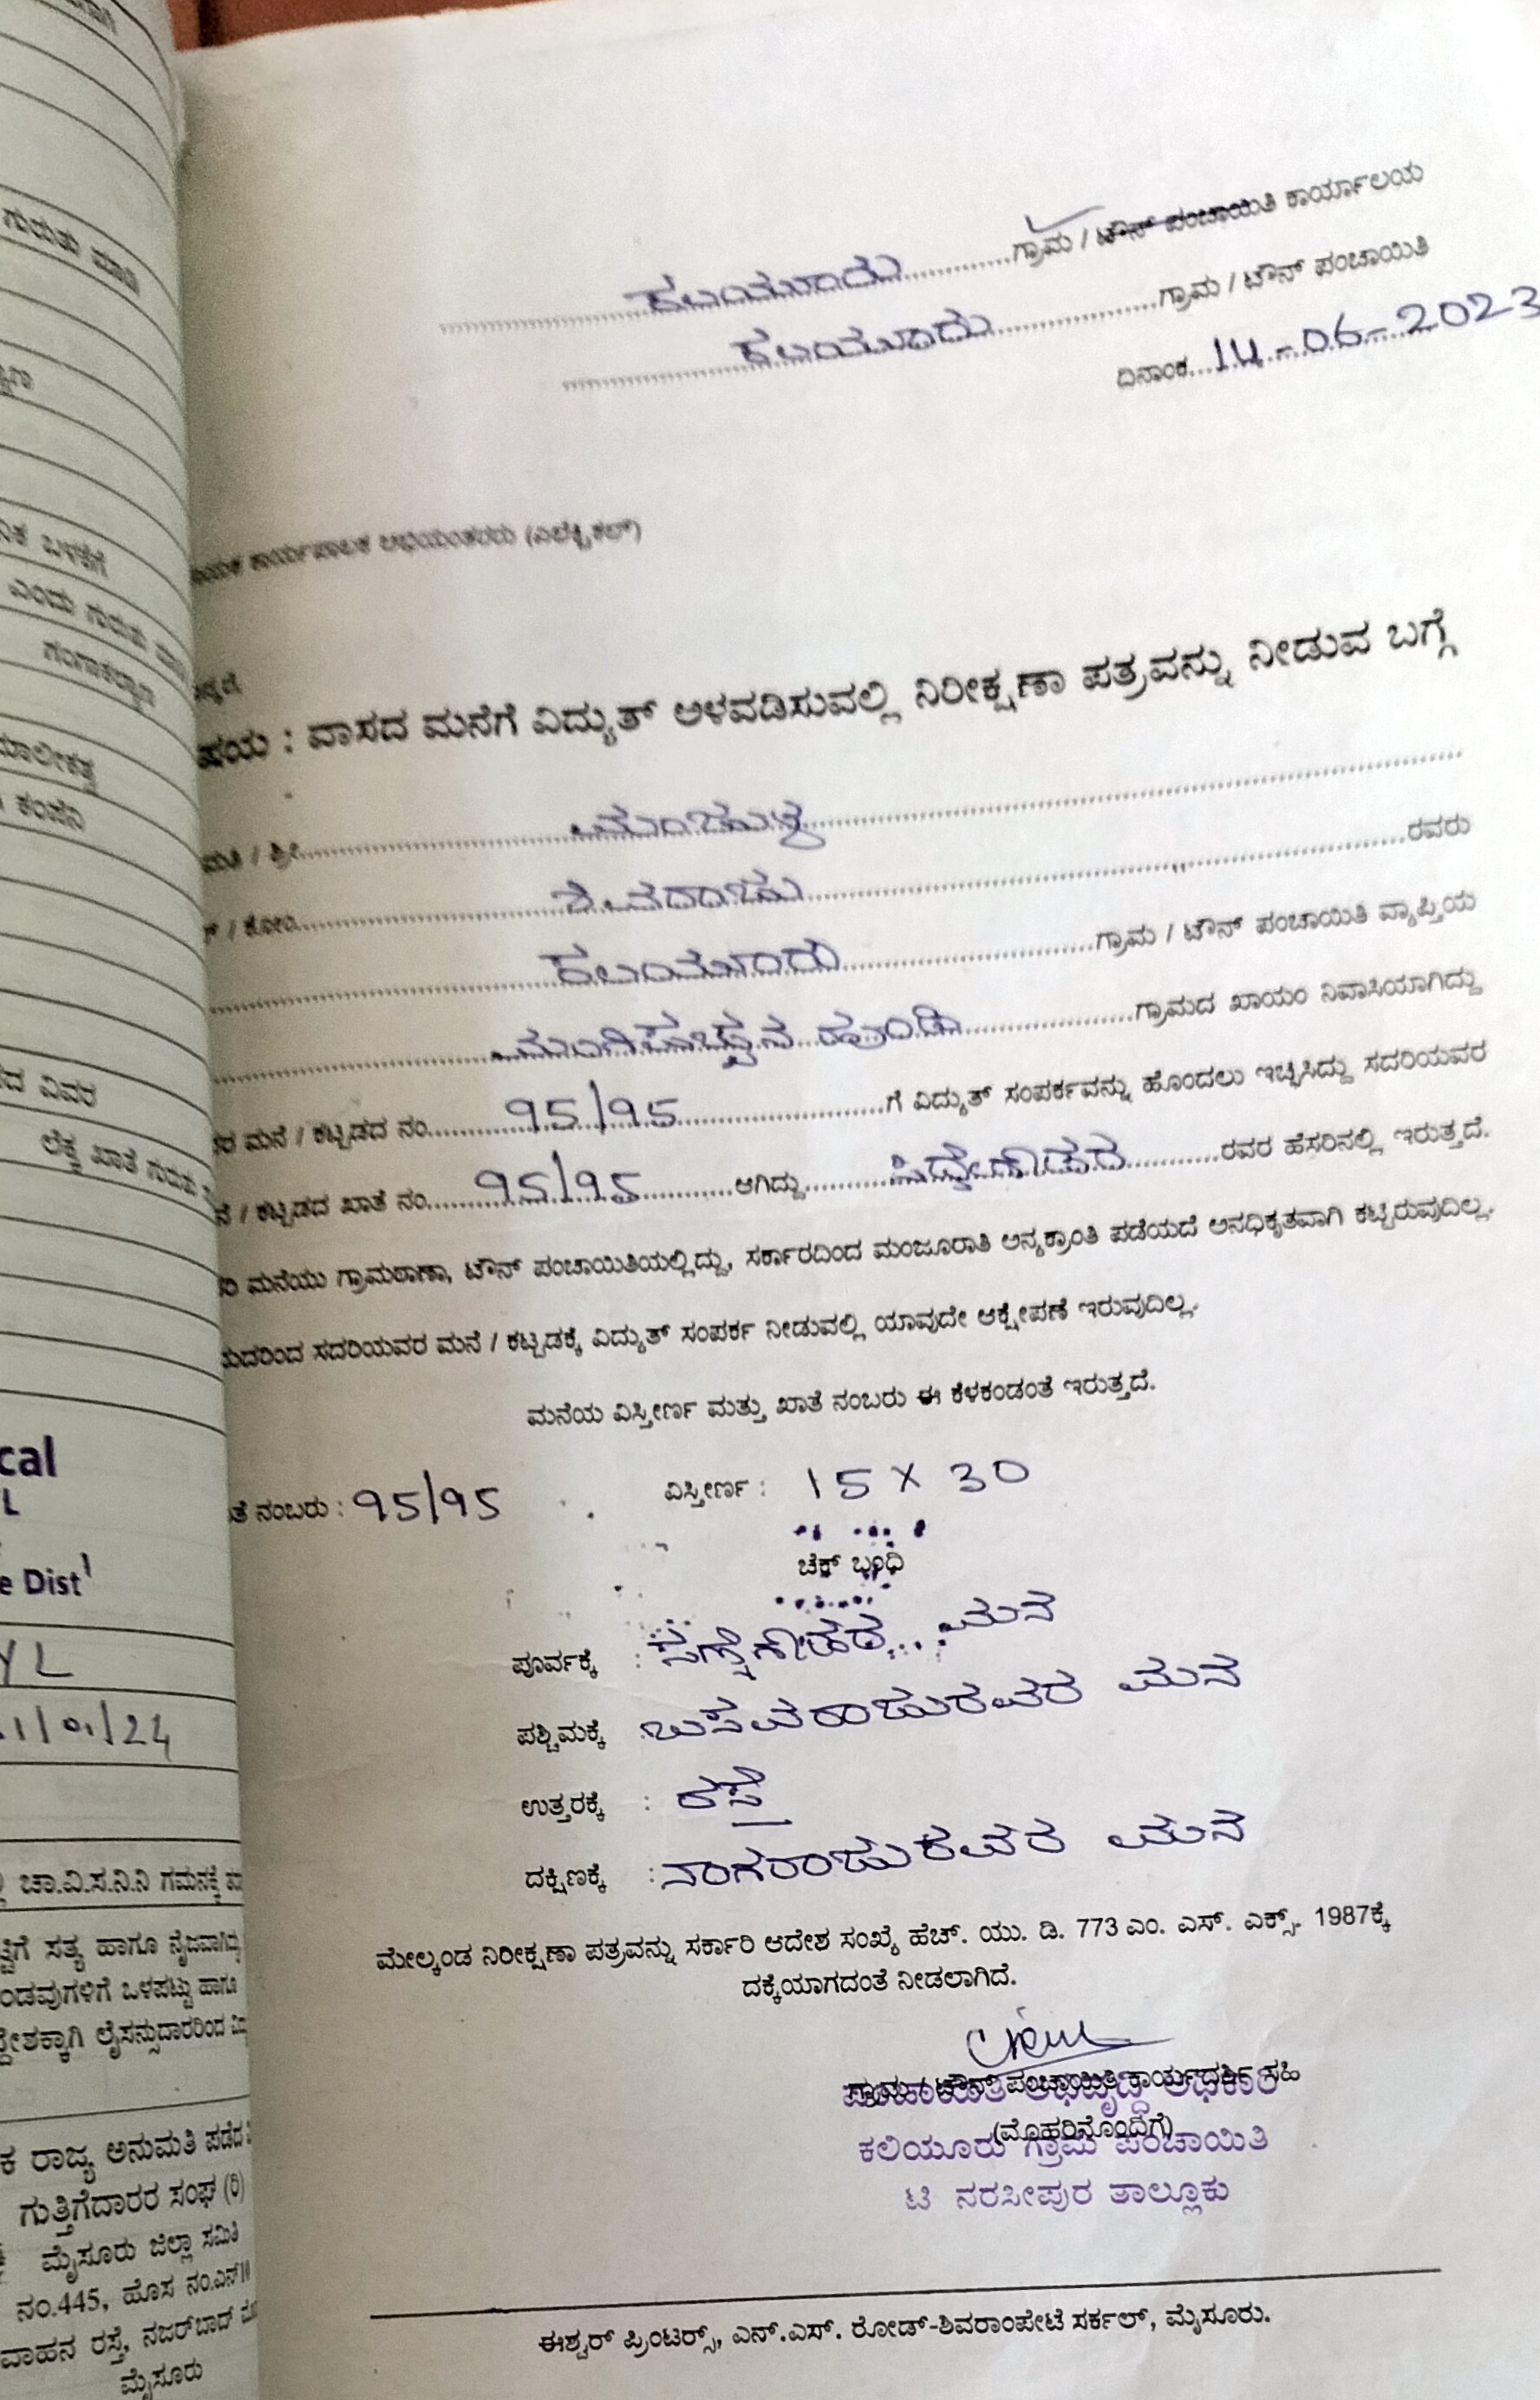 ಕಲಿಯೂರು ಗ್ರಾಮ / ಟೌನ್ ಪಂಚಾಯಿತಿ ಕಾರ್ಯಾಲಯ
ಕಲಿಯೂರು ಗ್ರಾಮ / ಟೌನ್ ಪಂಚಾಯಿತಿ
ದಿನಾಂಕ 14-06-2023
ಕಾರ್ಯಪಾಲಕ ಅಭಿಯಂತರರು (ಎಲೆಕ್ಟ್ರಿಕಲ್)
ಷಯ : ವಾಸದ ಮನೆಗೆ ವಿದ್ಯುತ್ ಅಳವಡಿಸುವಲ್ಲಿ ನಿರೀಕ್ಷಣಾ ಪತ್ರವನ್ನು ನೀಡುವ ಬಗ್ಗೆ
ಮತಿ / ಶ್ರೀ ಮಂಜುಳ
/ ಕೋಂ ಶಿವರಾಜು ರವರು
ಕಲಿಯೂರು ಗ್ರಾಮ / ಟೌನ್ ಪಂಚಾಯಿತಿ ವ್ಯಾಪ್ತಿಯ
ಹುಂಡಿ ಗ್ರಾಮದ ಖಾಯಂ ನಿವಾಸಿಯಾಗಿದ್ದು
ಮನೆ / ಕಟ್ಟಡದ ನಂ 95/95 ಗೆ ವಿದ್ಯುತ್ ಸಂಪರ್ಕವನ್ನು ಹೊಂದಲು ಇಚ್ಛಿಸಿದ್ದು ಸದರಿಯವರ
ನೆ / ಕಟ್ಟಡದ ಖಾತೆ ನಂ 95/95 ಆಗಿದ್ದು ಸಿದ್ದೇಗೌಡರ ರವರ ಹೆಸರಿನಲ್ಲಿ ಇರುತ್ತದೆ.
ರಿ ಮನೆಯು ಗ್ರಾಮಠಾಣಾ, ಟೌನ್ ಪಂಚಾಯಿತಿಯಲ್ಲಿದ್ದು, ಸರ್ಕಾರದಿಂದ ಮಂಜೂರಾತಿ ಅನ್ಯಕ್ರಾಂತಿ ಪಡೆಯದೆ ಅನಧಿಕೃತವಾಗಿ ಕಟ್ಟಿರುವುದಿಲ್ಲ.
ುದರಿಂದ ಸದರಿಯವರ ಮನೆ / ಕಟ್ಟಡಕ್ಕೆ ವಿದ್ಯುತ್ ಸಂಪರ್ಕ ನೀಡುವಲ್ಲಿ ಯಾವುದೇ ಆಕ್ಷೇಪಣೆ ಇರುವುದಿಲ್ಲ.
ಮನೆಯ ವಿಸ್ತೀರ್ಣ ಮತ್ತು ಖಾತೆ ನಂಬರು ಈ ಕೆಳಕಂಡಂತೆ ಇರುತ್ತದೆ.
ತೆ ನಂಬರು : 95/95 ವಿಸ್ತೀರ್ಣ : 15 X 30
ಚೆಕ್ ಬಂಧಿ
ಪೂರ್ವಕ್ಕೆ : ಮನೆ
ಪಶ್ಚಿಮಕ್ಕೆ : ಬಸವರಾಜುರವರ ಮನೆ
ಉತ್ತರಕ್ಕೆ : ರಸ್ತೆ
ದಕ್ಷಿಣಕ್ಕೆ : ನಾಗರಾಜುರವರ ಮನೆ
ಮೇಲ್ಕಂಡ ನಿರೀಕ್ಷಣಾ ಪತ್ರವನ್ನು ಸರ್ಕಾರಿ ಆದೇಶ ಸಂಖ್ಯೆ ಹೆಚ್. ಯು. ಡಿ. 773 ಎಂ. ಎಸ್. ಎಕ್ಸ್. 1987ಕ್ಕೆ
ದಕ್ಕೆಯಾಗದಂತೆ ನೀಡಲಾಗಿದೆ.
ಗ್ರಾಮ / ಟೌನ್ ಪಂಚಾಯಿತಿ ಕಾರ್ಯದರ್ಶಿ ಸಹಿ
ಪಂಚಾಯಿತಿ ಅಭಿವೃದ್ಧಿ ಅಧಿಕಾರಿ
(ಮೊಹರಿನೊಂದಿಗೆ)
ಕಲಿಯೂರು ಗ್ರಾಮ ಪಂಚಾಯಿತಿ
ಟಿ ನರಸೀಪುರ ತಾಲ್ಲೂಕು
ಈಶ್ವರ್ ಪ್ರಿಂಟರ್ಸ್, ಎನ್.ಎಸ್. ರೋಡ್-ಶಿವರಾಂಪೇಟೆ ಸರ್ಕಲ್, ಮೈಸೂರು.
ಗುರುತು ಮಾಡಿ
ಬಳಕೆಗೆ
ಎಂದು ಗುರುತು
ಗಂಗಾಕಲ್ಯಾಣ
ಮಾಲೀಕತ್ವ
ಕಂಪನಿ
ವಿವರ
ಲೆಕ್ಕ ಖಾತೆ ಗುರುತು
cal
L
e Dist
YL
1/01/24
ಚಾ.ವಿ.ಸ.ನಿ.ನಿ ಗಮನಕ್ಕೆ
ಟ್ಟಿಗೆ ಸತ್ಯ ಹಾಗೂ ನೈಜವಾಗಿದ್ದು
ಂಡವುಗಳಿಗೆ ಒಳಪಟ್ಟು ಹಾಗೂ
ದ್ದೇಶಕ್ಕಾಗಿ ಲೈಸನ್ಸುದಾರರಿಂದ
ಕ ರಾಜ್ಯ ಅನುಮತಿ ಪಡೆದ
ಗುತ್ತಿಗೆದಾರರ ಸಂಘ (ರಿ)
ಮೈಸೂರು ಜಿಲ್ಲಾ ಸಮಿತಿ
ನಂ.445, ಹೊಸ ನಂ.ಎನ್
ವಾಹನ ರಸ್ತೆ, ನಜರ್‌ಬಾದ್
ಮೈಸೂರು